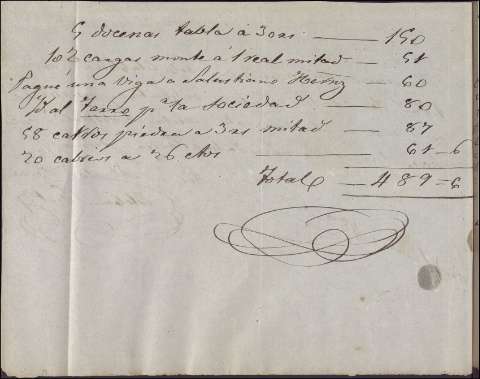 5 docenas tabla á 30 rs — 150
102 cargas monte á 1 real mitad — 51
Pagué una viga a Salustiano Hernz — 60
Id al pª la sociedad — 80
58 carros piedra a 3 rs mitad — 87
20 carros a 26 ctos — 61-6
Total — 489=6